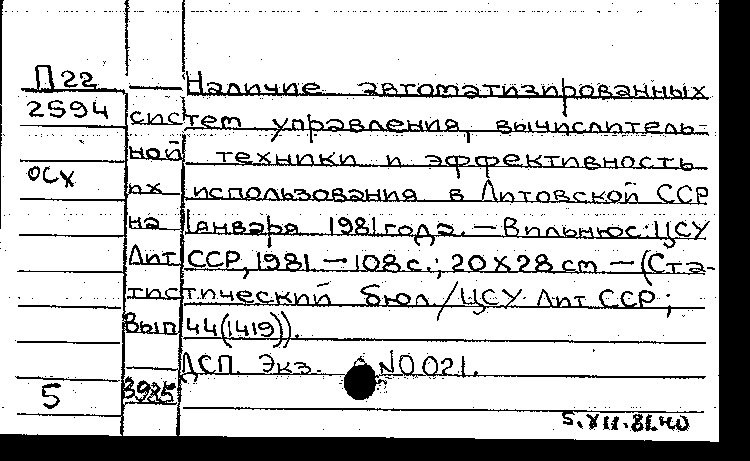 П22
2594
осх
Наличие автоматизированных
систем управления, вычислитель-
ной техники и эффективность
их использования в Литовской ССР
на 1 января 1981 года. — Вильнюс: ЦСУ
Лит ССР, 1981. — 108 с.; 20 X 28 cm. — (Ста-
тистический бюл. / ЦСУ Лит ССР;
Вып 44(1419)).
ДСП. Экз. N0021.
5
3925
5.XII.81.40